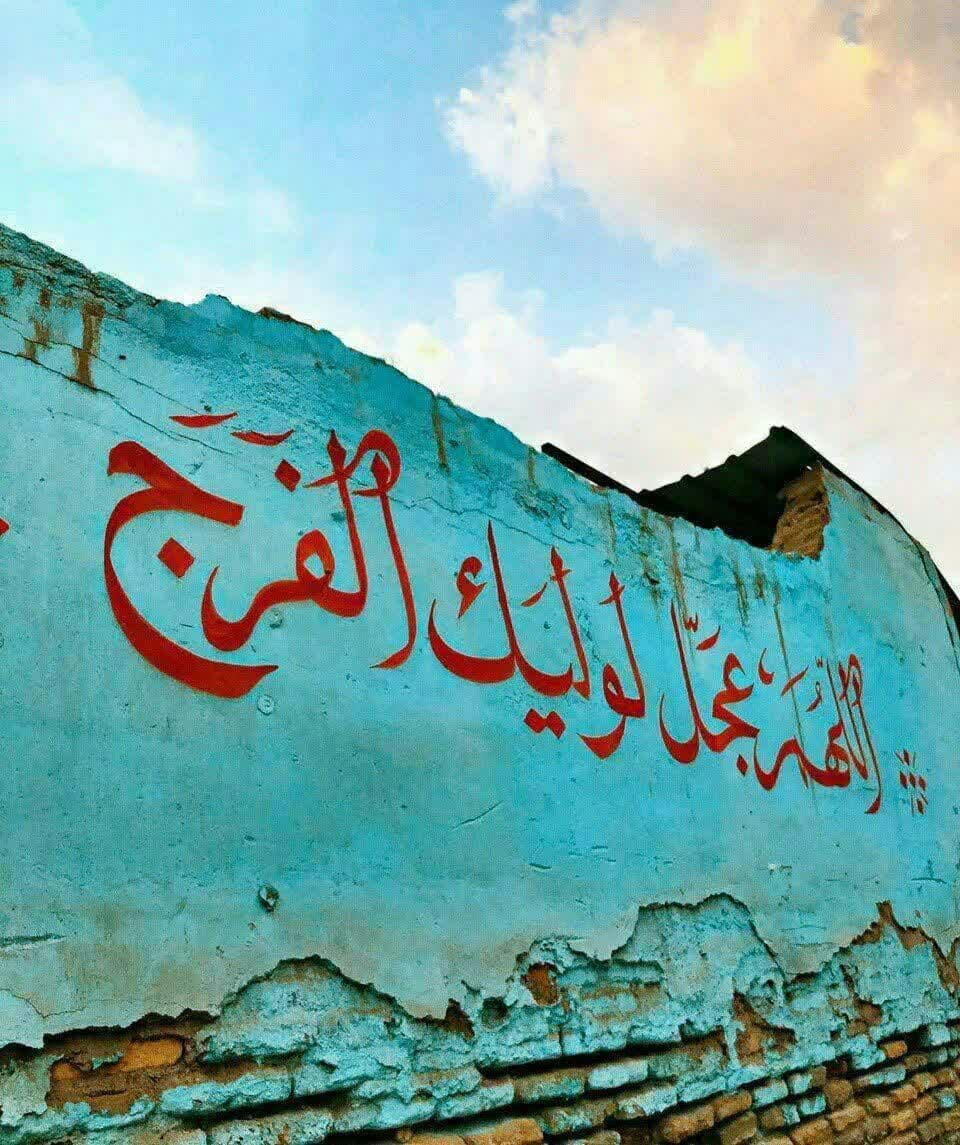 اللّهمَ عجّل لولیك الفرَج